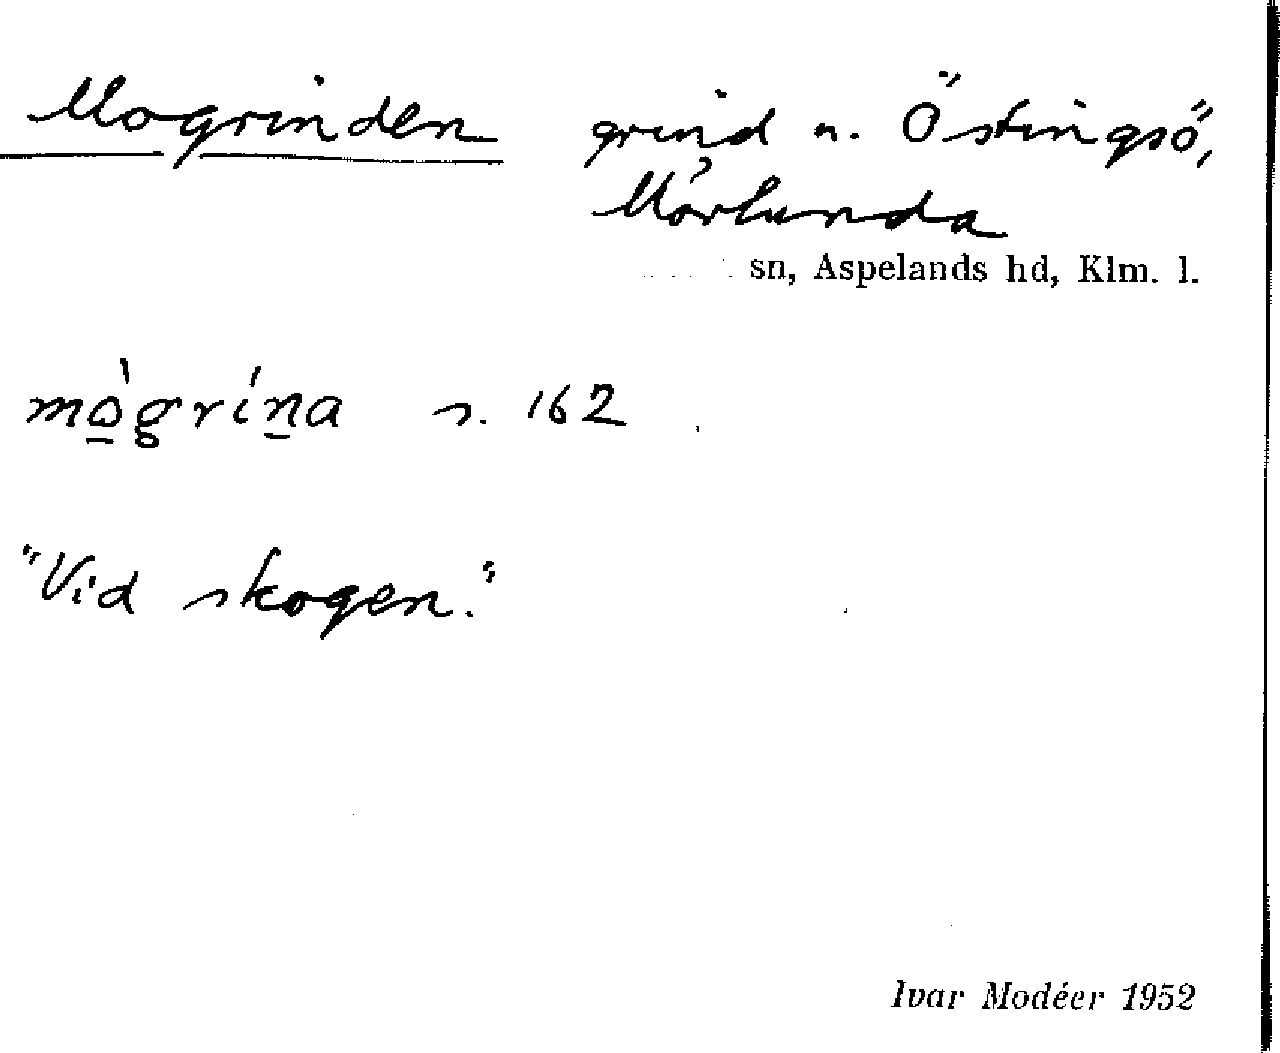 Mogrinden grind n. Östingsö,
Mörlunda
sn, Aspelands hd, Klm. l.
mo̱̍gri̍ṉa s. 162
"Vid skogen."
Ivar Modéer 1952